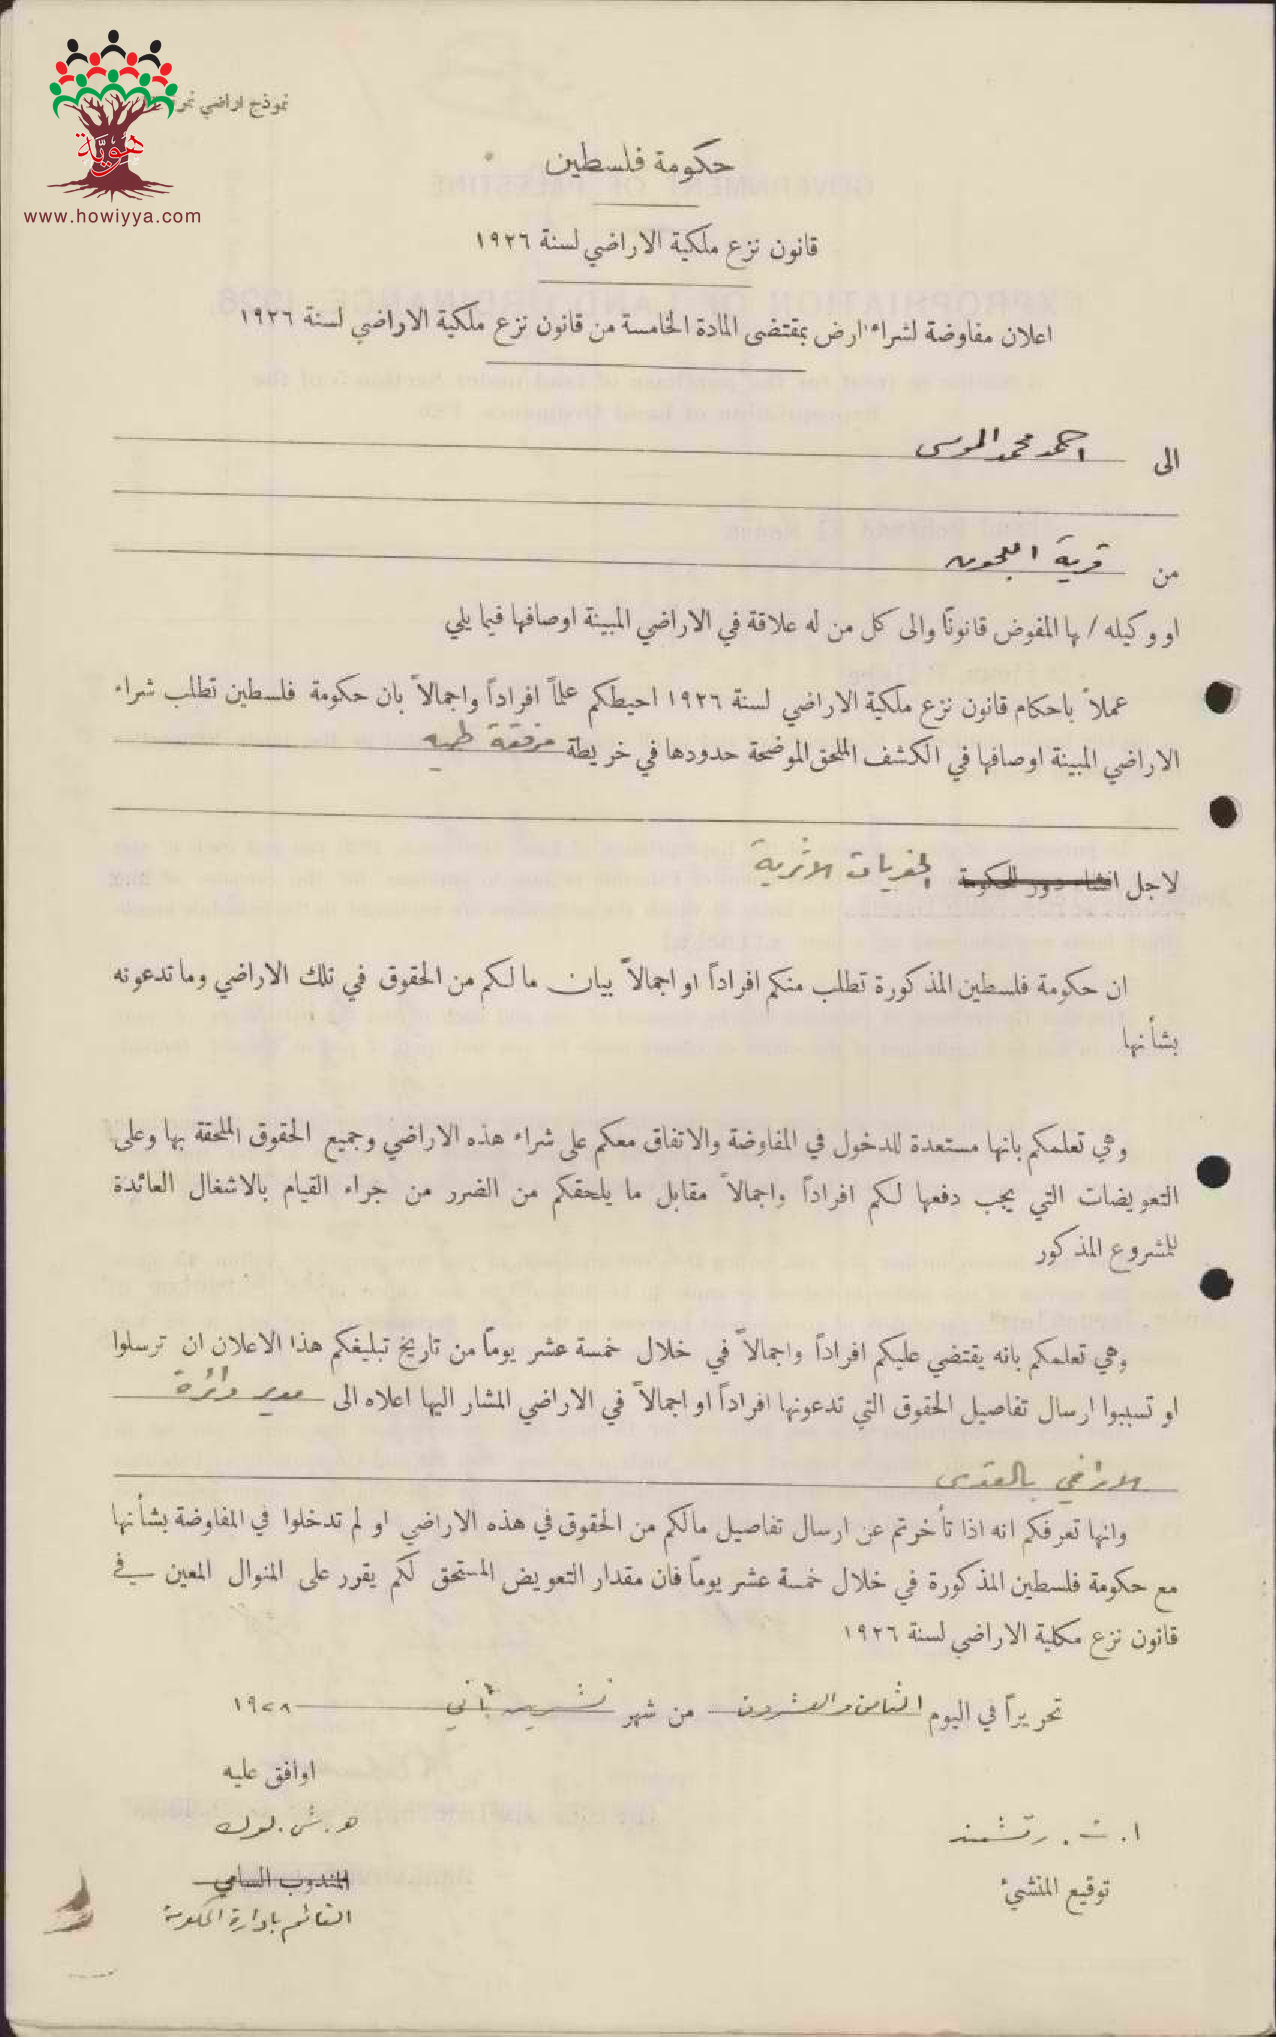 نموذج اراضي نمرة
هويّة
www.howiyya.com
حكومة فلسطين
قانون نزع ملكية الاراضي لسنة ١٩٢٦
اعلان مفاوضة لشراء ارض بمقتضى المادة الخامسة من قانون نزع ملكية الاراضي لسنة ١٩٢٦
الى احمد محمد الموسى
من قرية اللجون
او وكيله / ها المفوض قانونًا والى كل من له علاقة في الاراضي المبينة اوصافها فيما يلي
عملاً باحكام قانون نزع ملكية الاراضي لسنة ١٩٢٦ احيطكم علماً افراداً واجمالاً بان حكومة فلسطين تطلب شراء
الاراضي المبينة اوصافها في الكشف الملحق الموضحة حدودها في خريطة مرفقة طيه
لاجل انشاء دور للحكومة الحفريات الاثرية
ان حكومة فلسطين المذكورة تطلب منكم افراداً او اجمالاً بيان ما لكم من الحقوق في تلك الاراضي وما تدعونه
بشأنها
وهي تعلمكم بانها مستعدة للدخول في المفاوضة والاتفاق معكم على شراء هذه الاراضي وجميع الحقوق الملحقة بها وعلى
التعويضات التي يجب دفعها لكم افراداً واجمالاً مقابل ما يلحقكم من الضرر من جراء القيام بالاشغال العائدة
للمشروع المذكور
وهي تعلمكم بانه يقتضي عليكم افراداً واجمالاً في خلال خمسة عشر يوماً من تاريخ تبليغكم هذا الاعلان ان ترسلوا
او تسببوا ارسال تفاصيل الحقوق التي تدعونها افراداً او اجمالاً في الاراضي المشار اليها اعلاه الى مدير دائرة
الاراضي بالقدس
وانها تعرفكم انه اذا تأخرتم عن ارسال تفاصيل مالكم من الحقوق في هذه الاراضي او لم تدخلوا في المفاوضة بشأنها
مع حكومة فلسطين المذكورة في خلال خمسة عشر يوماً فان مقدار التعويض المستحق لكم يقرر على المنوال المعين في
قانون نزع مكلية الاراضي لسنة ١٩٢٦
تحريراً في اليوم الثامن والعشرون من شهر تشرين ثاني ١٩٢٨
اوافق عليه
ا. ت. رتشمند
ه. ش. لوك
توقيع المنشيء
المندوب السامي
القائم بادارة الحكومة